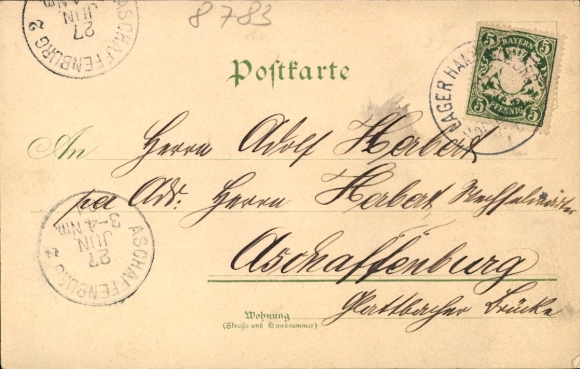 8783
ASCHAFFENBURG 2
27
JUN
Nm
BAYERN
5 5
5 5
PFENNIG
LAGER HAM
Postkarte
An Herrn Adolf Herbert
per Adr: Herrn Herbert, Wechselwärter
Aschaffenburg
Glattbacher Brücke
ASCHAFFENBURG 2
27
JUN
3-4 Nm
Wohnung
(Straße und Hausnummer)